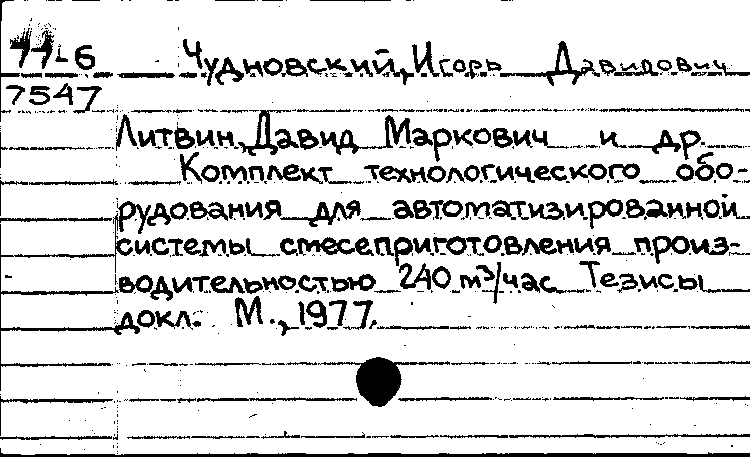 77-6 Чудновский, Игорь Давидович
7547
Литвин, Давид Маркович и др.
Комплект технологического обо-
рудования для автоматизированной
системы смесеприготовления произ-
водительностью 240 м³/час Тезисы
докл. М., 1977.